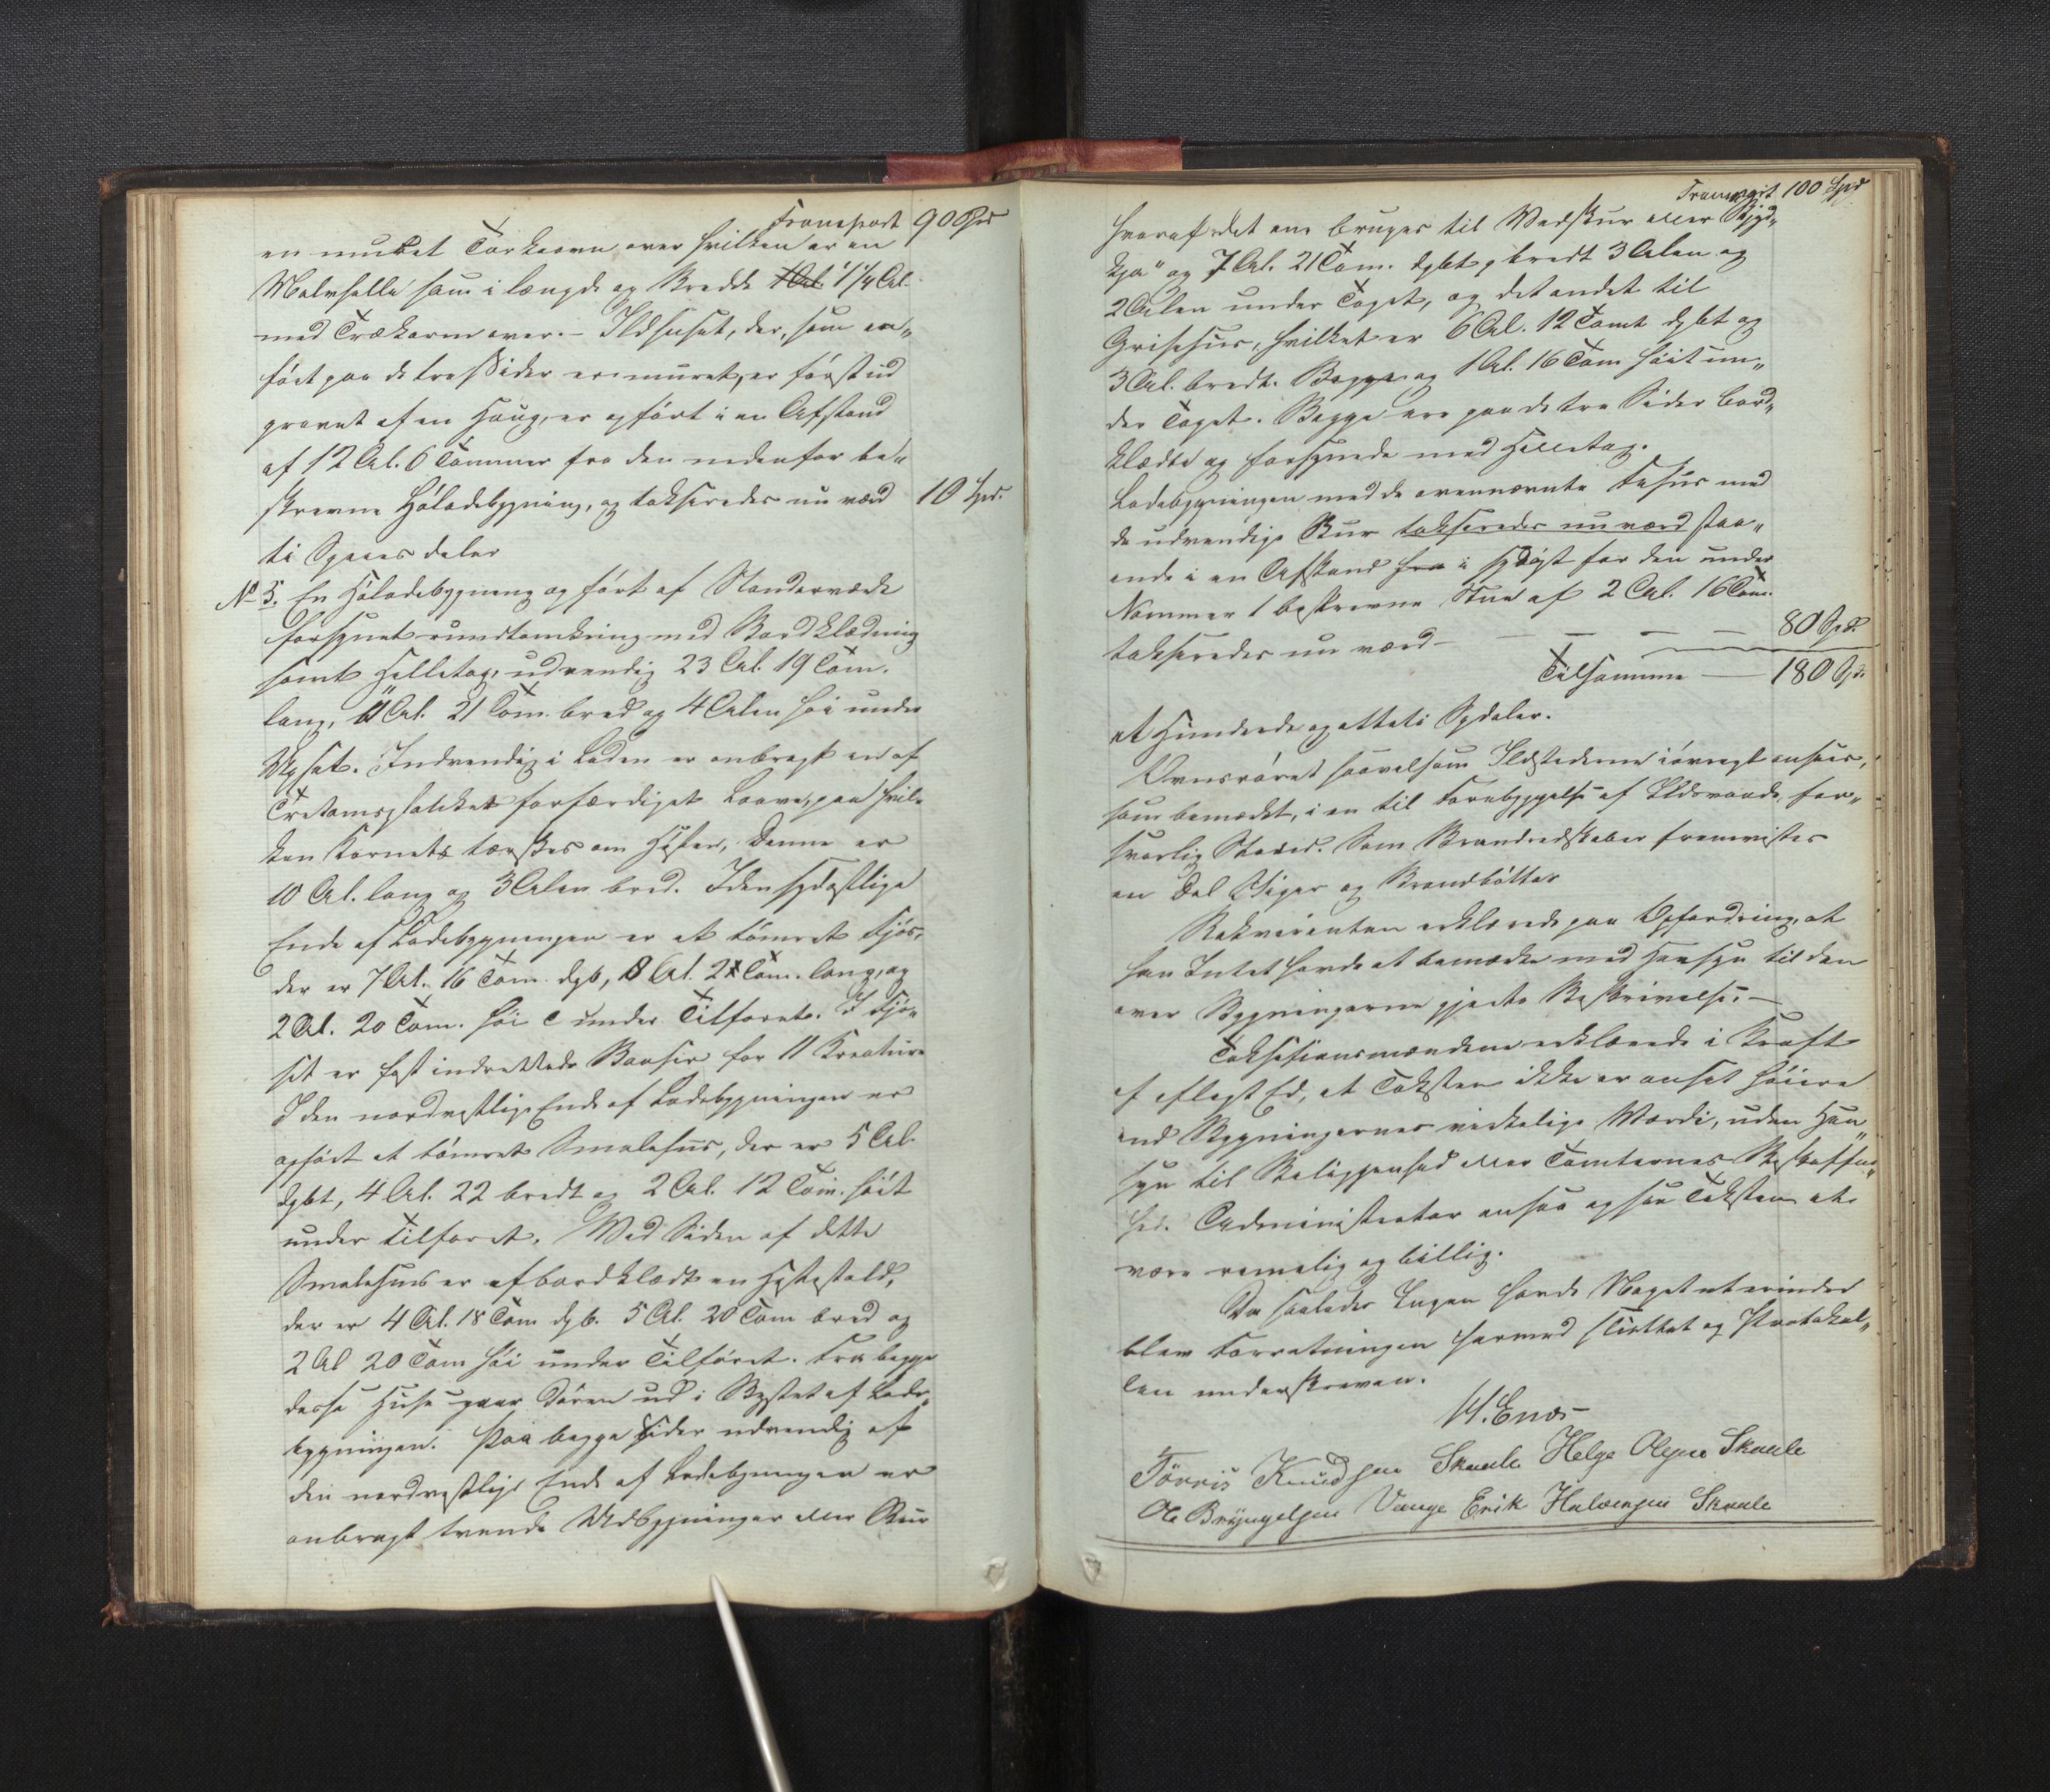 Transport 90 Spd
en muret Tørkeovn, over hvilken er en
Malmhelle som i længde og Bredde 1 1/4 Al.
med Trækarm over. – Ildhuset, der, som an„
ført paa de tre Sider er muret, er først ud
gravet af en Haug, er opført i en Afstand
af 12 Al. 6 Tommer fra den nedenfor be„
skrevne Høladebygning, og takseredes nu værd 10 Spd.
ti Species daler
No 5. En Høladebygning opført af Standerværk
forsynet rundtomkring med Bordklædning
samt Helletag, udvendig 23 Al. 19 Tom.
lang, 11 Al. 21 Tom. bred og 4 Alen høi under
Opsat. Indvendig i Laden er anbragt en af
Tretoms planker forfærdiget Laave, paa hvil„
ken Kornet tærskes om Høsten, denne er
10 Al. lang og 3 Alen bred. I den sydøstlige
Ende af Ladebygningen er et tømret Fjøs,
der er 7 Al. 16 Tom. dyb, 8 Al. 2 Tom. lang, og
2 Al. 20 Tom. høi under Tilfaret. I Fjø„
set er fast indrettede Baaser for 11 Kreature
I den nordvestlige Ende af Ladebygningen er
opført et tømret Smalehus, der er 5 Al.
dybt, 4 Al. 22 bredt og 2 Al. 12 Tom. høit
under Tilfaret. Ved Siden af dette
Smalehus er af bordklædt en Hestestald,
der er 4 Al. 18 Tom dyb. 5 Al. 20 Tom bred og
2 Al 20 Tom høi under Tilfaret. Fra begge
disse Huse gaar Døren ud i Bystet af Lade„
bygningen. Paa begge Sider udvendig af
den nordvestlige Ende af Ladebygningen er
anbragt tvende Udbygninger eller Skur
Transport 100 Spd
hvoraf det ene bruges til Vedskur eller Skyd„
kja" og 7 Al. 21 Tom. dybt, bredt 3 Alen og
2 Alen under Taget, og det andet til
Grisehus, hvilket er 6 Al. 12 Tomt dybt og
3 Al. bredt. Begge og 1 Al. 16 Tom høit un„
der Taget. Begge ere paa de tre Sider bord„
klædte og forsynede med Helletag.
Ladebygningen med de ovennævnte Fæhus med
de udvendige Skur takseredes nu værd staa„
ende i en Afstand fra i sydøst for den under
Nommer 1 beskrevne Stue af 2 Al. 16 Tom.
takseredes nu værd – – – – – 80 Spd.
Tilsammen – 180 Spd.
et Hundrede og otteti Spdaler.
Ovnsrøret saavelsom Ildstederne iøvrigt ansees,
som bemærket, i en til Forebyggelse af Ildsvaade for„
svarlig Stand. Som Brandredskaber fremvistes
en Del Stiger og Brandbøtter
Rekvirenten erklærede paa Opfordring, at
han Intet havde at bemærke med Hensyn til den
over Bygningerne gjorte Beskrivelse. –
Taksationsmændene erklærede i Kraft
af aflagt Ed, at Taksten ikke er ansat høiere
end Bygningernes virkelige Værdi, uden Hen„
syn til Beliggenhed eller Tomternes Beskaffen„
hed. Administrator ansaa ogsaa Taksten at
være rimelig og billig.
Da saaledes Ingen havde Noget at erindre
blev Forretningen hermed sluttet og Protokol„
len underskreven.
Tørris Knudsen Skaale Helge Olsen Skaale
Ole Bryngelsen Vange Erik Halvorsen Skaale